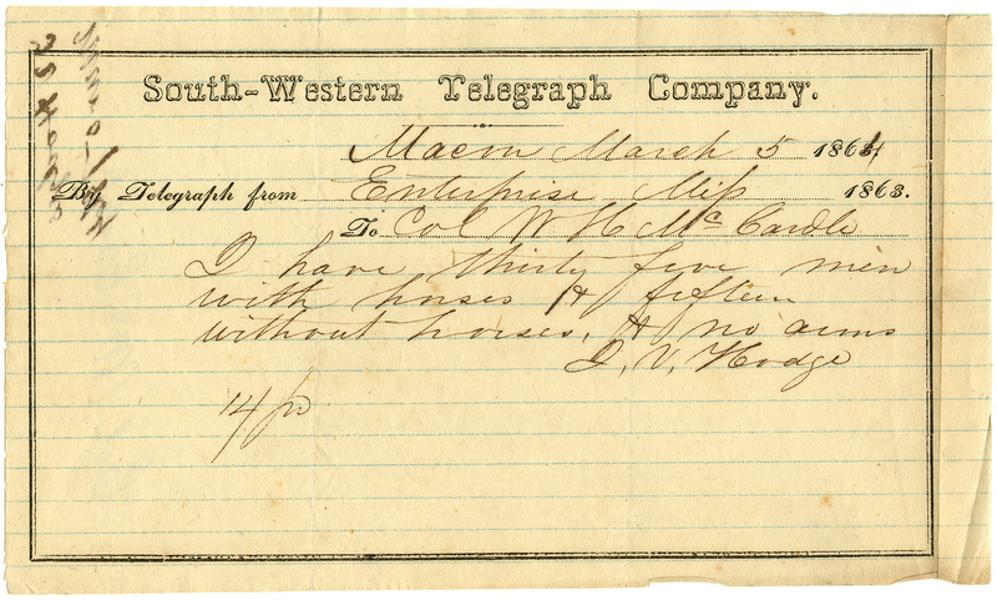 South-Western Telegraph Company.
Macon March 5 1864
By Telegraph from Enterprise Miss 1863.
To Col W H McCardle
I have thirty five men
with horses & fifteen
without horses, & no arms
J. V. Hodge
14 pd